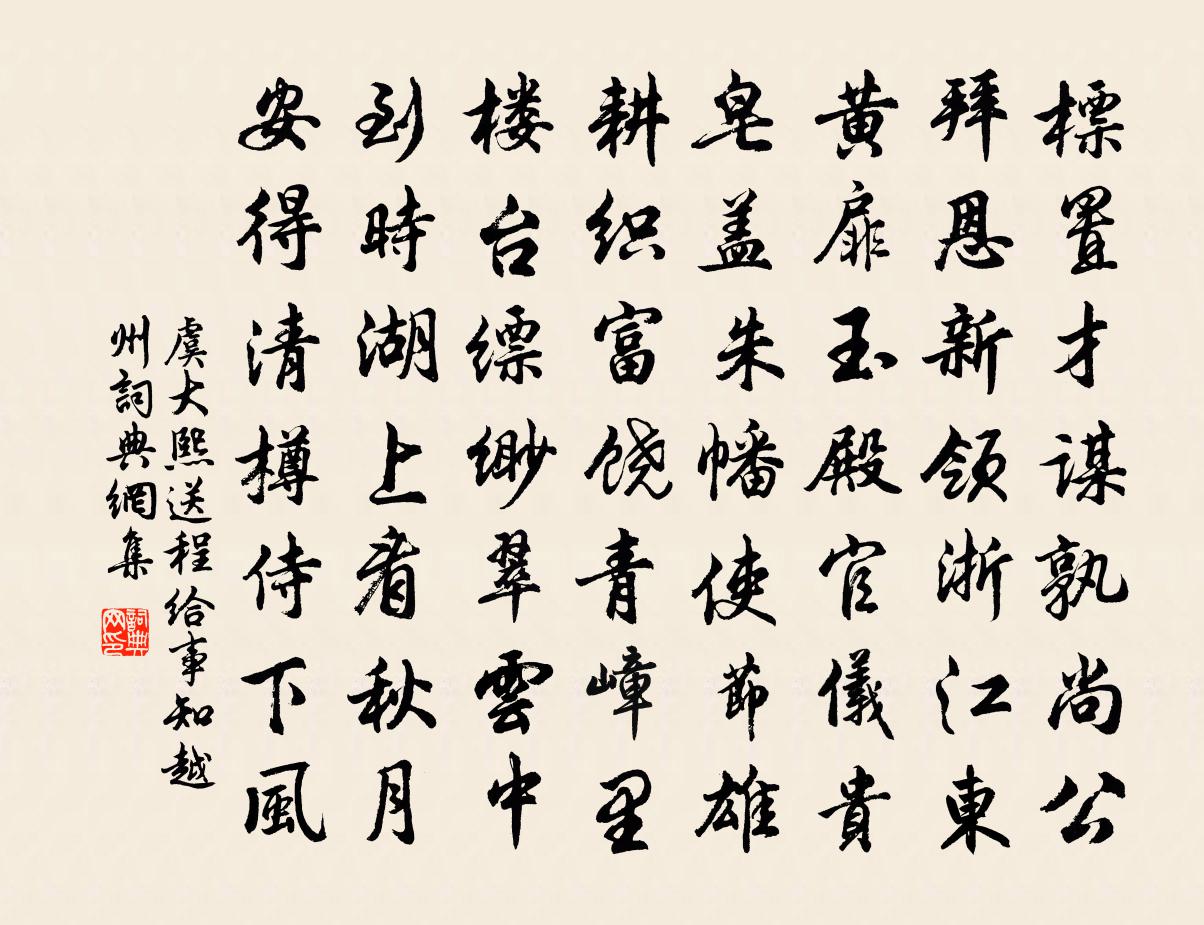 標置才謀孰尚公
拜恩新領浙江東
黄扉玉殿官儀貴
皂盖朱幡使節雄
耕织富饶青嶂里
楼台缥缈翠雲中
到時湖上看秋月
安得清樽侍下風
虞大熙送程給事知越
州詞典網集
詞典
网印